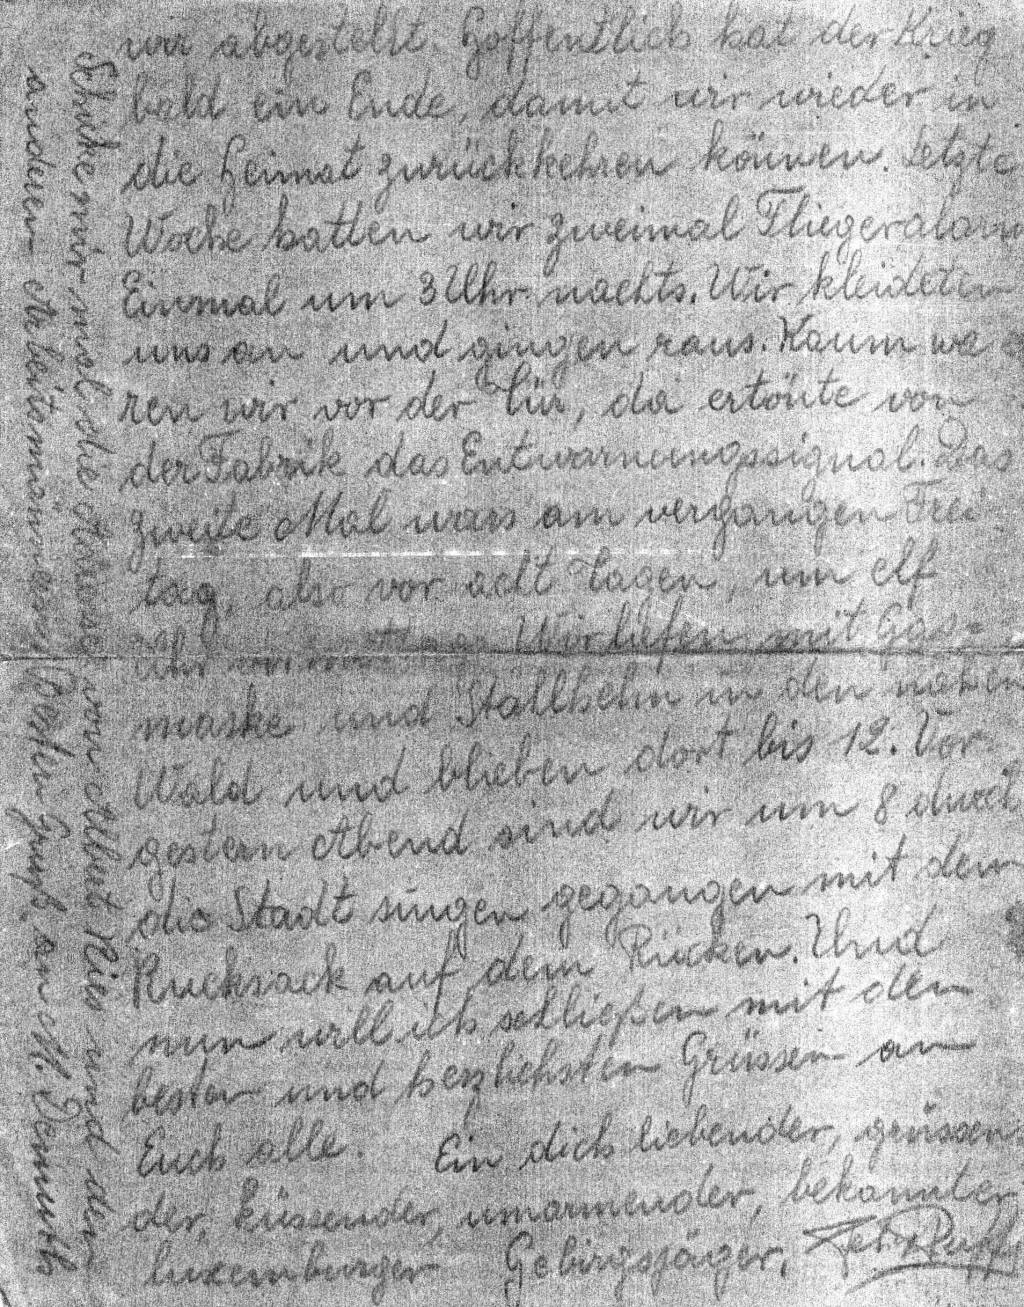 wir abgestellt. Hoffentlich hat der Krieg
bald ein Ende, damit wir wieder in
die Heimat zurückkehren können. Letzte
Woche hatten wir zweimal Fliegeralarm
Einmal um 3 Uhr nachts. Wir kleideten
uns an und gingen raus. Kaum wa
ren wir vor der Tür, da ertönte von
der Fabrik das Entwarnungssignal. Das
zweite Mal wars am vergangen Frei
tag, also vor acht Tagen, um elf
Uhr Wir liefen mit Gas=
maske und Stallhelm in den nahen
Wald und blieben dort bis 12. Vor
gestern Abend sind wir um 8 durch
die Stadt singen gegangen mit dem
Rucksack auf dem Rücken. Und
nun will ich schließen mit den
besten und herzlichsten Grüssen an
Euch alle. Ein dich liebender, grüssen
der, küssender, umarmender, bekannter
luxemburger Gebirgsjäger.
Schicke mir mal die Adresse von Albert und den
anderen Arbeitsmännern. Gruß an M. Demuth